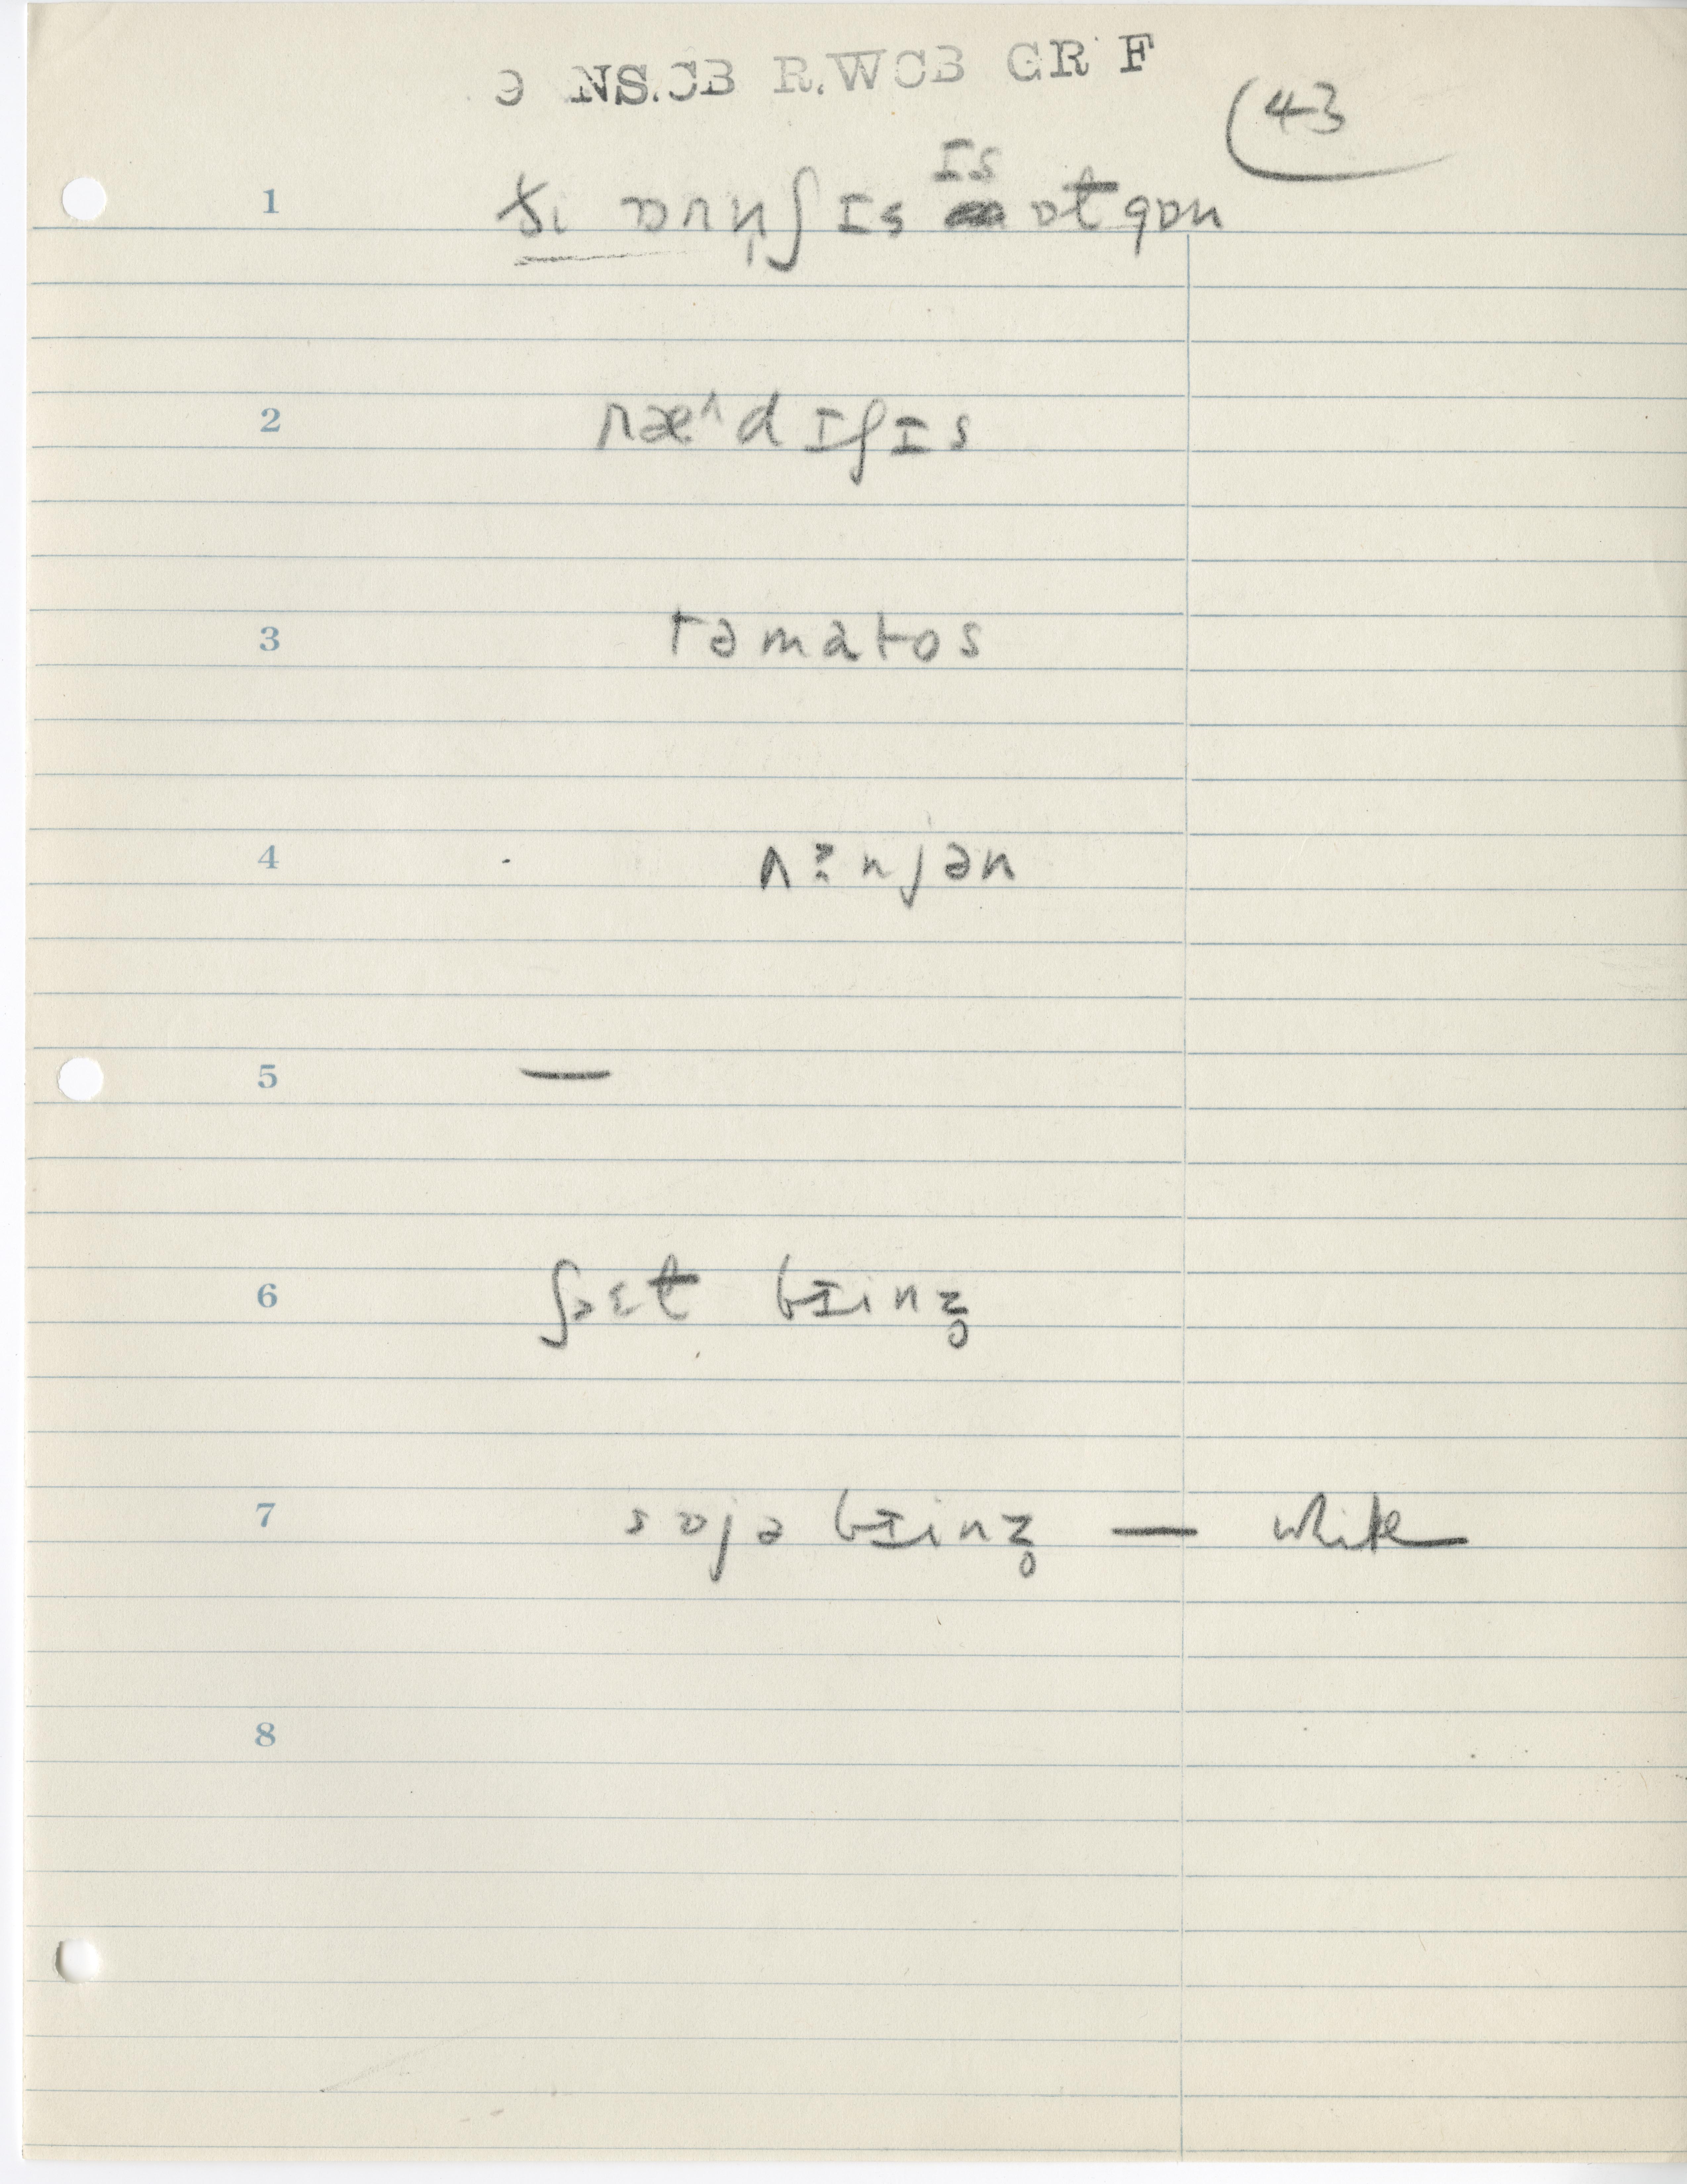 9 NS.CB R.WCB GR F
(43
ɪs
1 ði ɒrn̩ʃɪs ɒt gɒn
2 ræ^dɪʃɪs
3 təmatos
4 ʌ njən
5 —
6 bɪinz̥
7 sɒjə bɪinz̥ — white
8